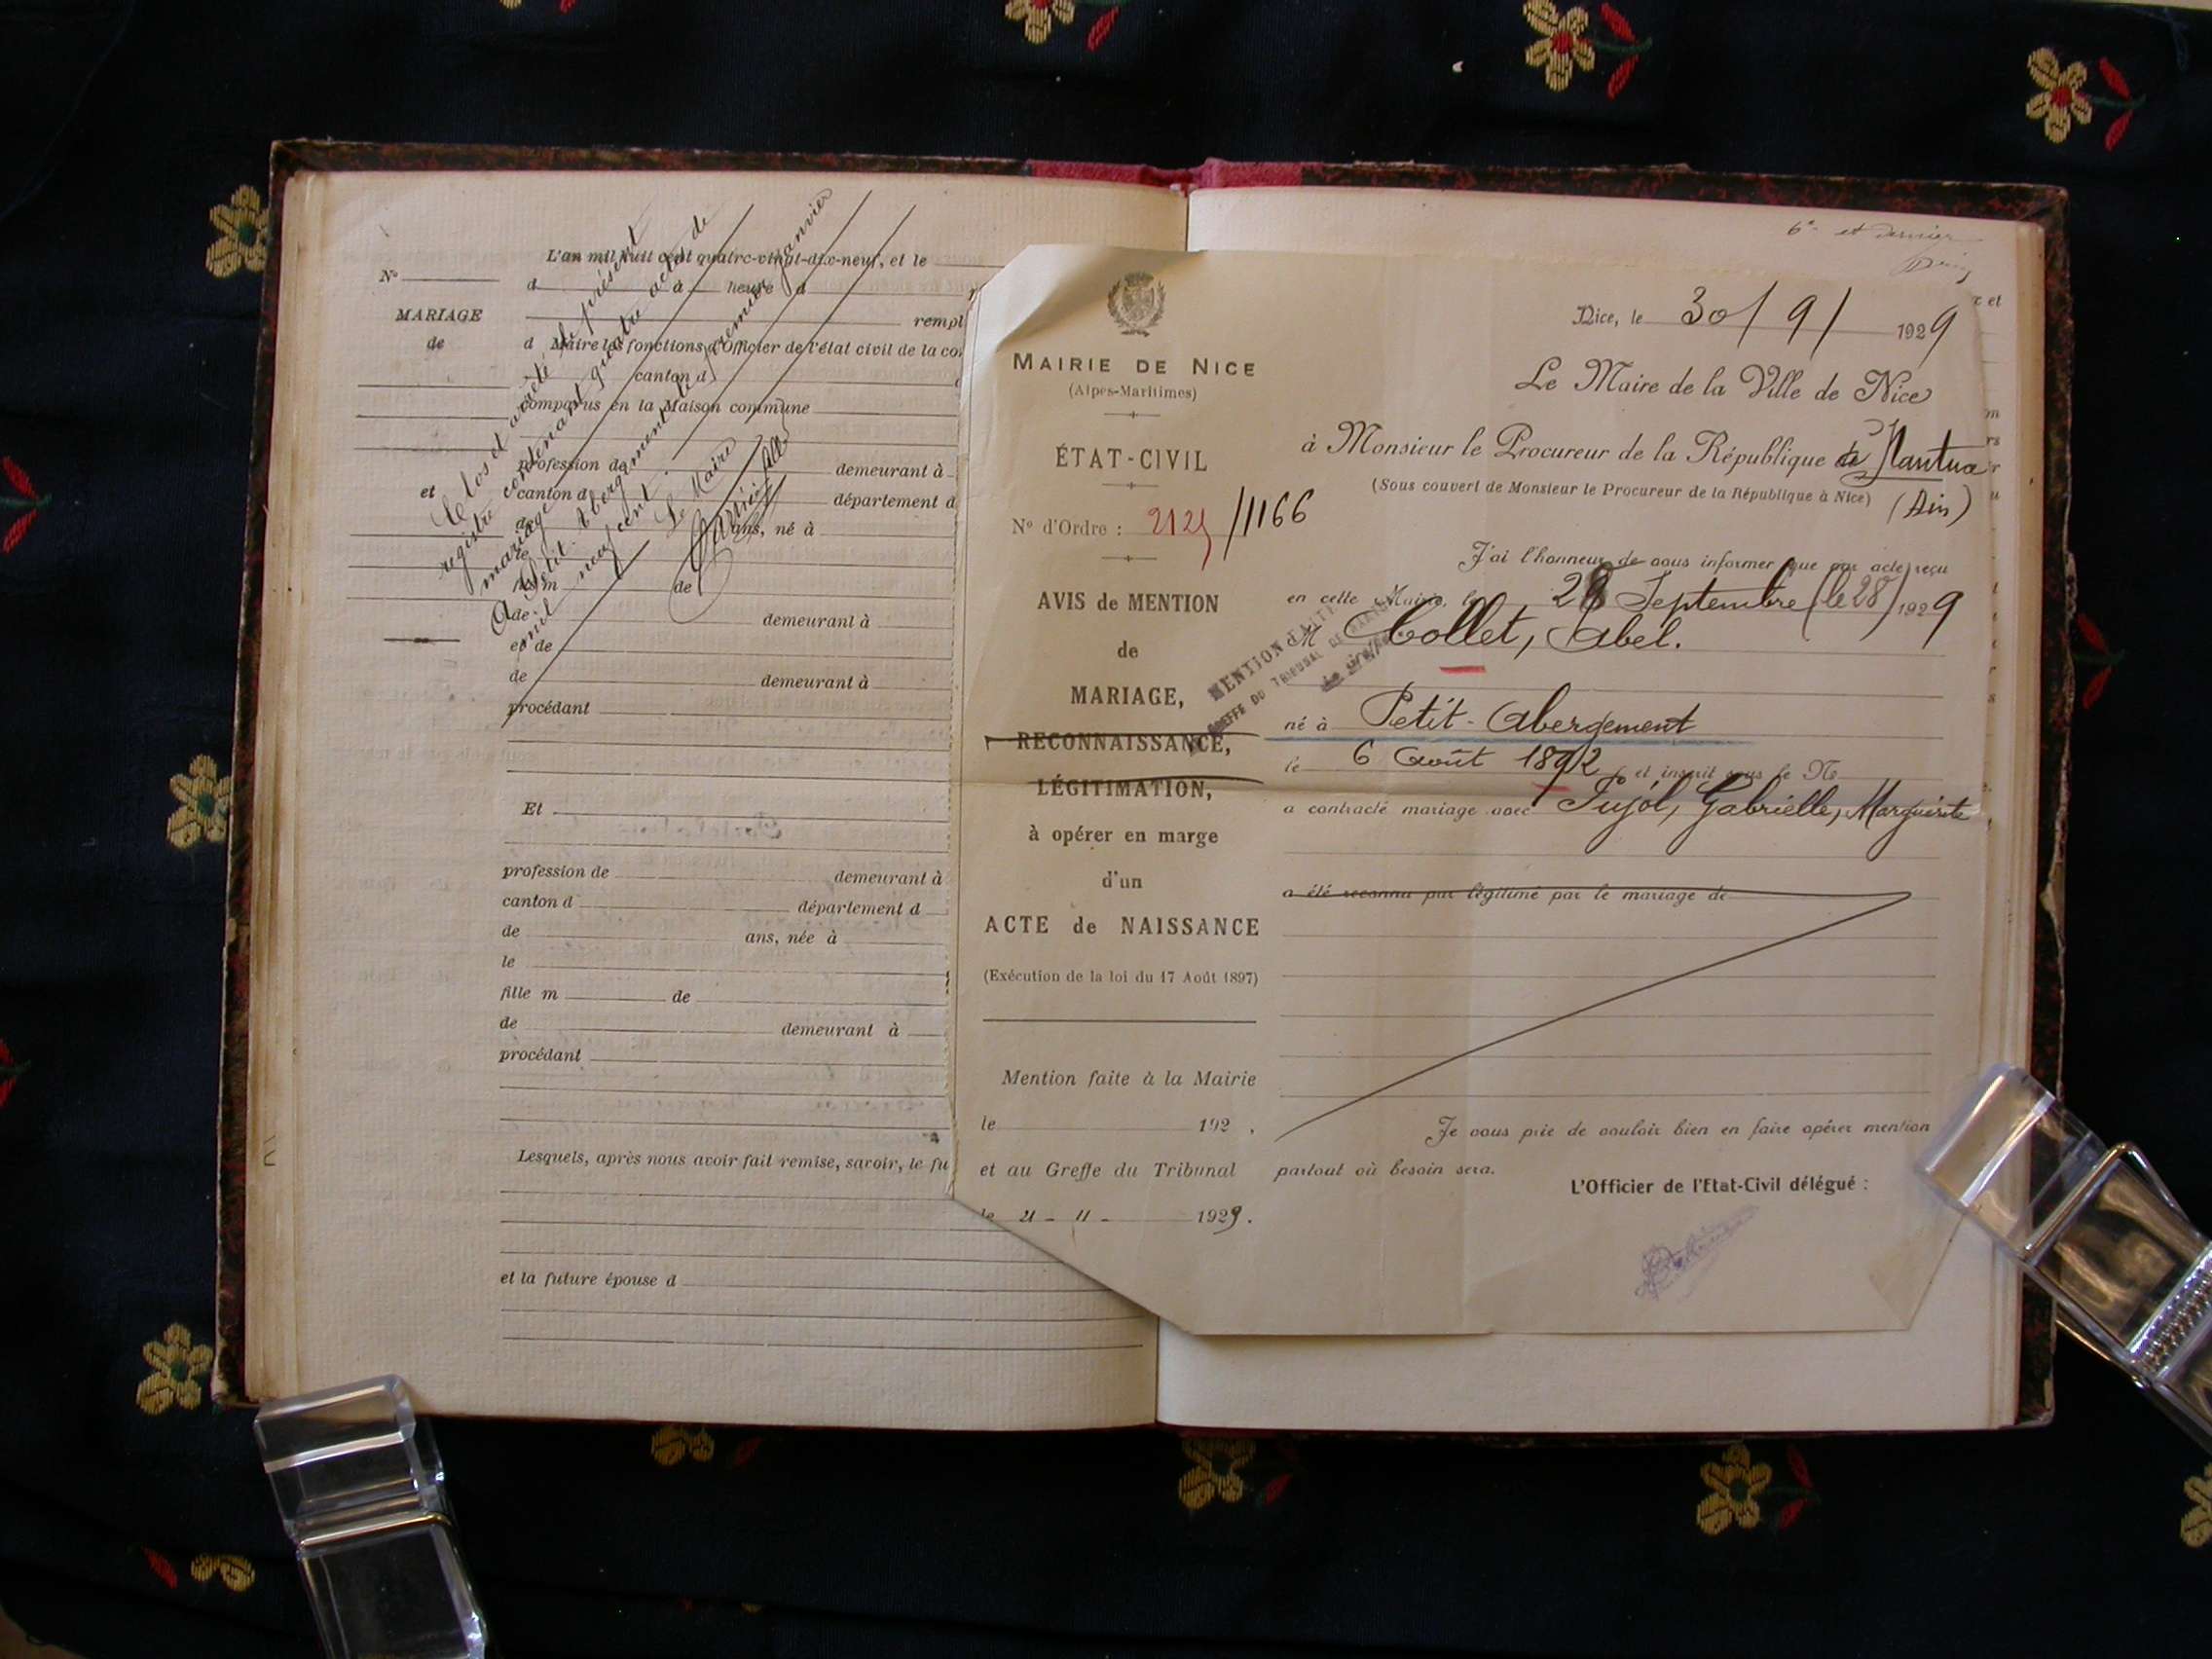 L'an mil huit cent quatre-vingt-dix-neuf, et le
N°
d à heure d
MARIAGE
rempl
de
d Maire les fonctions d'Officier de l'état civil de la co
canton d
comparus en la Maison commune
profession de demeurant à
et
canton d département d
de ans, né à
le
fils m de
de demeurant à
et de
de demeurant à
procédant
Clos et arrêté le présent
registre contenant quatre actes de
mariage
A Petit-Abergement le premier janvier
mil neuf cent.
Le Maire
Et
profession de demeurant à
canton d département d
de ans, née à
le
fille m de
de demeurant à
procédant
Lesquels, après nous avoir fait remise, savoir, le fu
et la future épouse d
6e et dernier
MAIRIE DE NICE
(Alpes-Maritimes)
ÉTAT-CIVIL
N° d'Ordre : 2125/1166
AVIS de MENTION
de
MARIAGE,
RECONNAISSANCE,
LÉGITIMATION,
à opérer en marge
d'un
ACTE de NAISSANCE
(Exécution de la loi du 17 Août 1897)
Mention faite à la Mairie
le 192 .
et au Greffe du Tribunal
le 21 - 11 - 1929.
Nice, le 30/9/ 1929
Le Maire de la Ville de Nice
à Monsieur le Procureur de la République de Nantua
(Sous couvert de Monsieur le Procureur de la République à Nice) (Ain)
J'ai l'honneur de vous informer que par acte reçu
en cette Mairie, le 28 Septembre (le 28) 1929
M Collet, Abel.
MENTION FAITE
GREFFE DU TRIBUNAL DE NANTUA
né à Petit-Abergement
le 6 Août 1892 et inscrit sous le No
a contracté mariage avec Pujol, Gabrielle, Marguerite
a été reconnu par légitimé par le mariage de
Je vous prie de vouloir bien en faire opérer mention
partout où besoin sera.
L'Officier de l'Etat-Civil délégué :